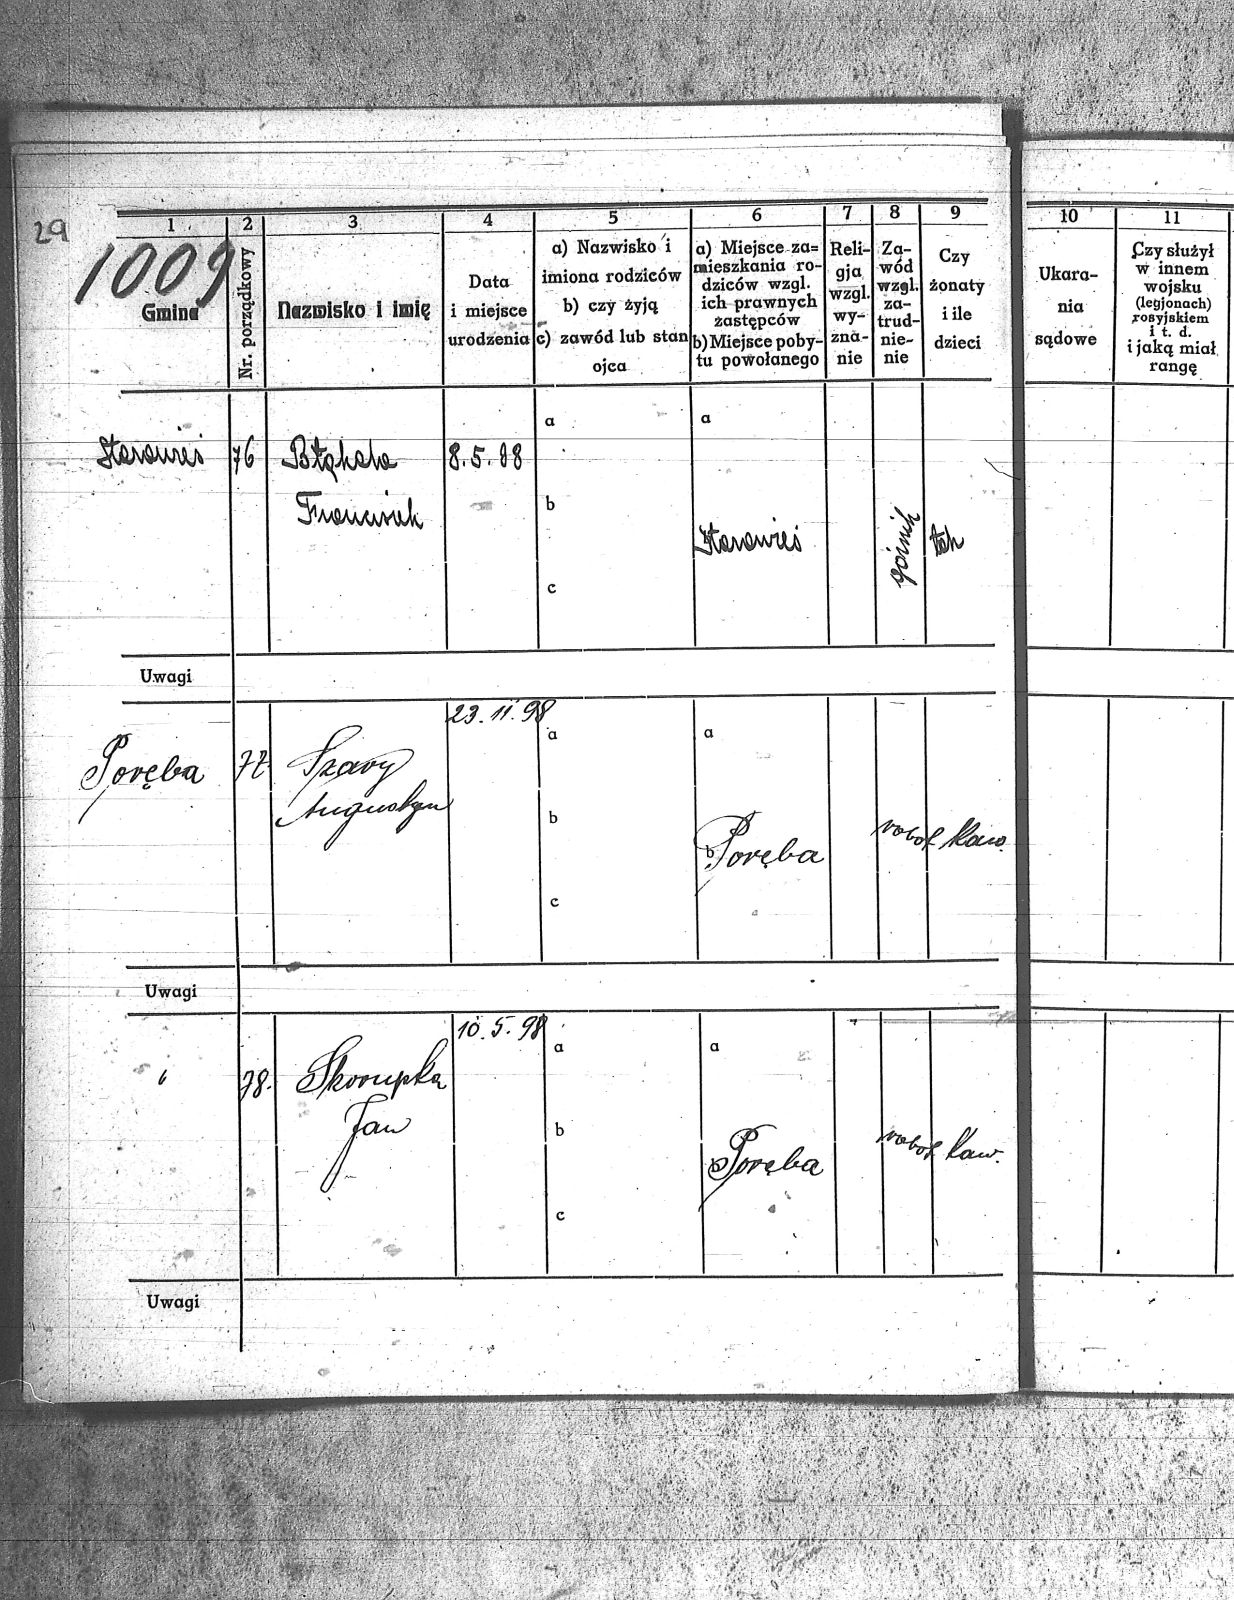 29
1009
1 2 3 4 5 6 7 8 9 10 11
Gmina
Nr. porządkowy
Nazwisko i imię
Data
i miejsce
urodzenia
a) Nazwisko i
imiona rodziców
b) czy żyją
c) zawód lub stan
ojca
a) Miejsce za=
mieszkania ro-
dziców wzgl.
ich prawnych
zastępców
b) Miejsce poby-
tu powołanego
Reli-
gja
wzgl.
wy-
zna-
nie
Za-
wód
wzgl.
za-
trud-
nie-
nie
Czy
żonaty
i ile
dzieci
Ukara-
nia
sądowe
Czy służył
w innem
wojsku
(legjonach)
rosyjskiem
i t. d.
i jaką miał
rangę
a a
Starawieś 76 8.5.88
Franciszek
b
Starawieś górnik tak
c
Uwagi
23.11.98
a a
Poręba 77. Szary
Augustyn
b
b Poręba robot kaw.
c
Uwagi
10.5.98
a a
" 78. Skorupka
Jan
b
b Poręba robot kaw.
c
Uwagi